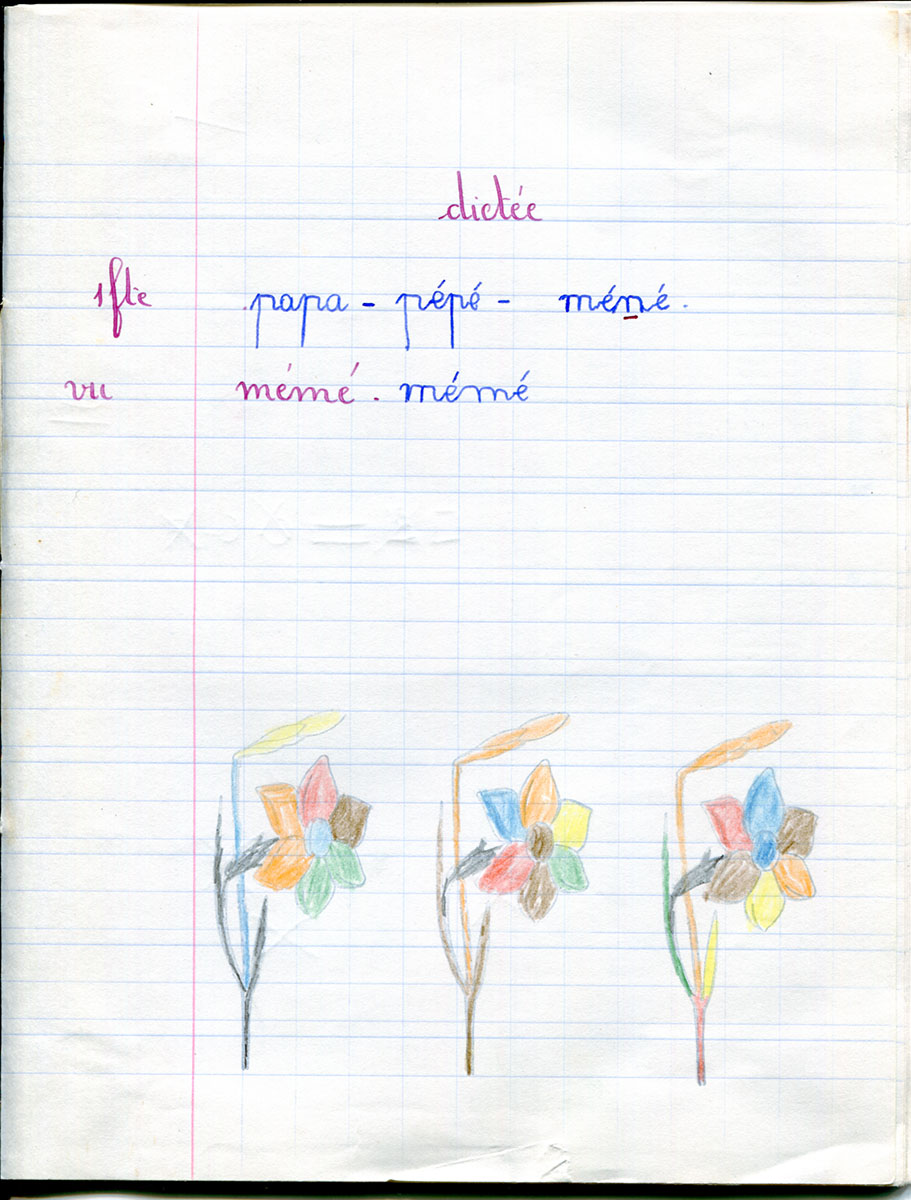 dictée
1fte papa - pépé - méné.
vu mémé. mémé